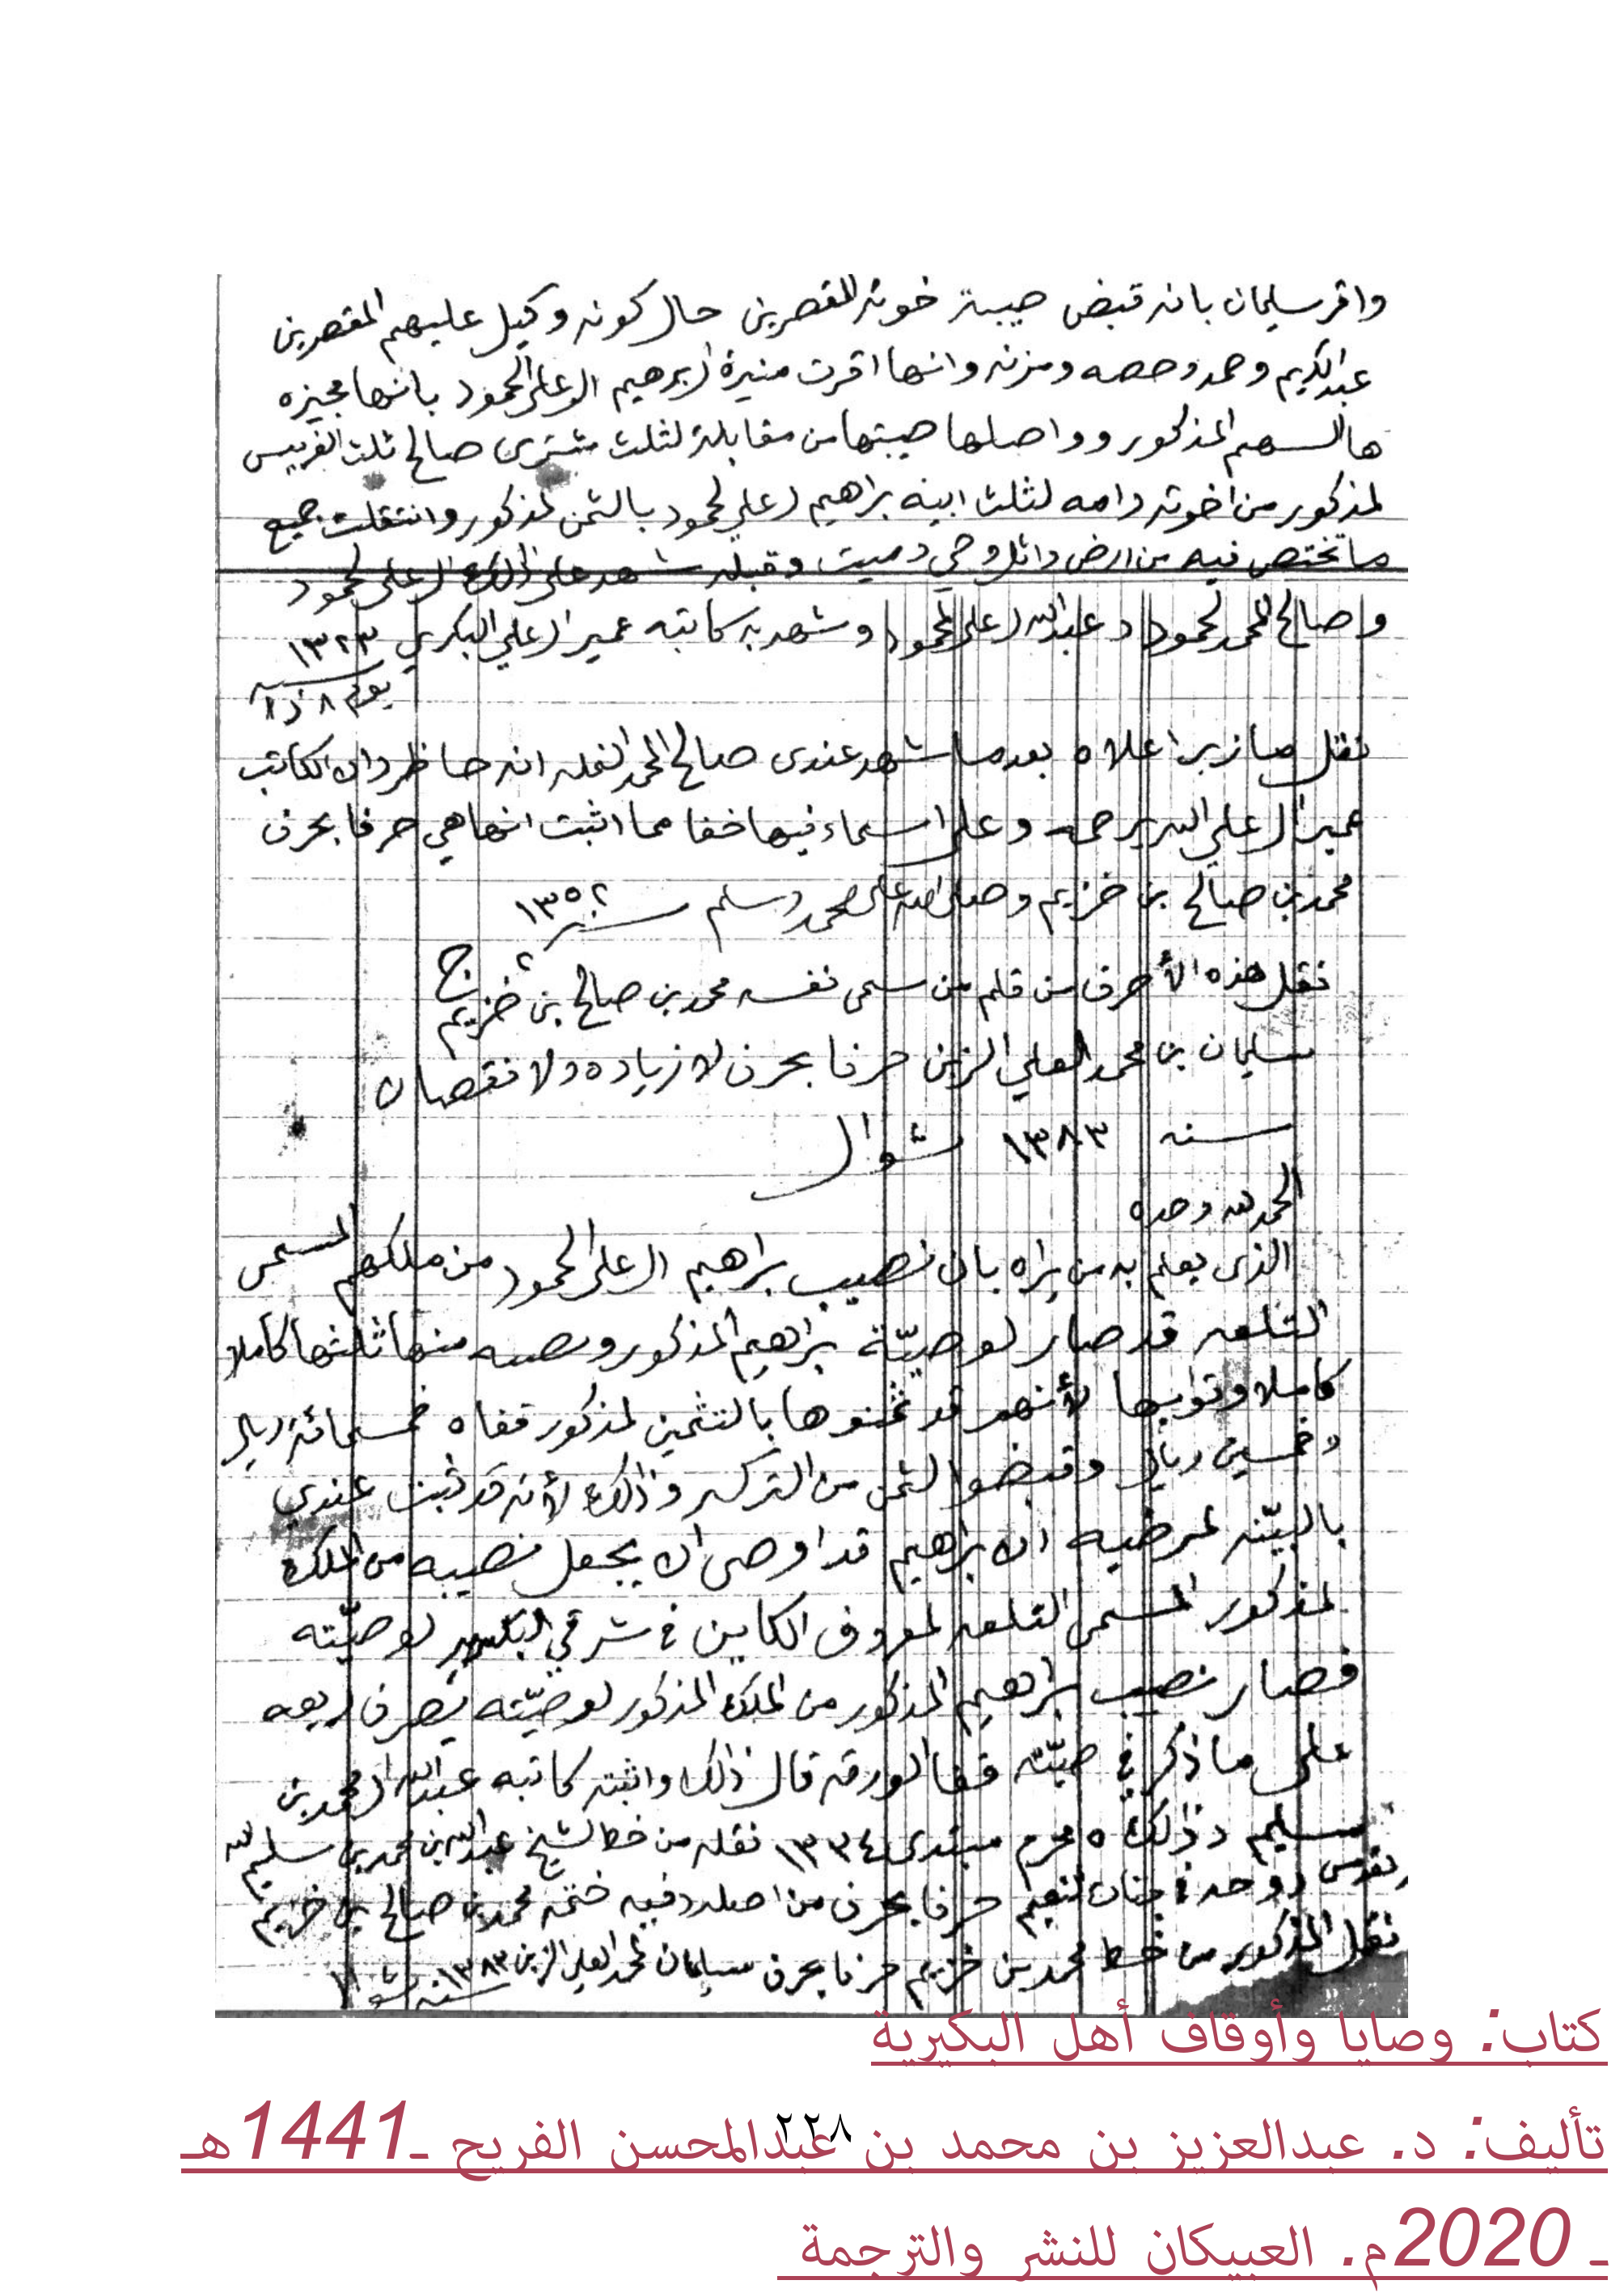 واقر سليمان بانه قبض صيبة خوته القصرين حال كونه وكيل عليهم القصرين
عبدالكريم وحمد وحصه ومزنه وانها اقرت منيرة ال برهيم العلي المحمود بانها مجيزه
هالسهم المذكور وواصلها صيبتها من مقابلة لثلث مشترى صالح ثلث الفريس
لمذكور من اخوته وامه لثلث ابيه براهيم لعلي لحمود بالثمن لمذكور وانتقلت جميع
ما تختص فيه من ارض واثل وحي وميت وقبله شهد على ذلك العلي لحمود
وصالح المحمد لحمود وعبدالله لعلي المحمود وشهد به كاتبه عمير ال علي البكري ١٣٢٣
يوم ٨ ذا
نقل ما زبر اعلاه بعدما شهد عندى صالح المحمد انه حاظر وان الكاتب
عمير ال علي الله يرحمه وعلى اسماء فيها خفا مما اثبت انها هي حرفا بحرف
محمد بن صالح بن خزيم وصلى الله على محمد وسلم ١٣٥٢
٢ ج
نقل هذه الأحرف من قلم من سمى نفسه محمد بن صالح بن خزيم
سليمان بن محمد العلي الزبن حرفا بحرف لا زياده ولا نقصان
سنه ١٣٨٣ شوال
الحمد لله وحده
الذى يعلم به من يراه بان نصيب براهيم ال علي الحمود من ملكهم المسمى
التلعه قد صار لوصيّة براهيم المذكور ونصيبه منها ثلثها كاملا
كاملا وتوابها لأنهم قد ثمنوها بالتثمين لمذكور قفاه خمسمائة ريال
وخمسين ريال وقبضوا لثمن من التركه وذلك لأنه قد ثبت عندي
بالبيّنه لمرضيه ان براهيم قد اوصى ان يجعل نصيبه من الملك
لمذكور المسمى التلعه لمعروف الكاين في شرقي لوصيّته
فصار نصيب براهيم المذكور من الملك المذكور لوصيّته يصرف ريعه
على ما ذكر في صيّته قفا الورقه قال ذلك واثبته كاتبه عبدالله ال محمد بن
سليم وذلك ٥ محرم مبتدى ١٣٣٤ نقله من خط الشيخ عبدالله بن محمد بن سليم الله
يقدس روحه في جنات لنعيم حرفا بحرف من اصله وفيه ختمه محمد بن صالح بن خزيم
نقل المذكور من خط محمد بن خزيم حرفا بحرف سليمان لمحمد العلي الزبن ١٣٨٣ سنه شوال
كتاب: وصايا وأوقاف أهل البكيرية
تأليف: د. عبدالعزيز بن محمد بن عبدالمحسن الفريح ـ1441هـ
٢٢٨
ـ 2020م. العبيكان للنشر والترجمة